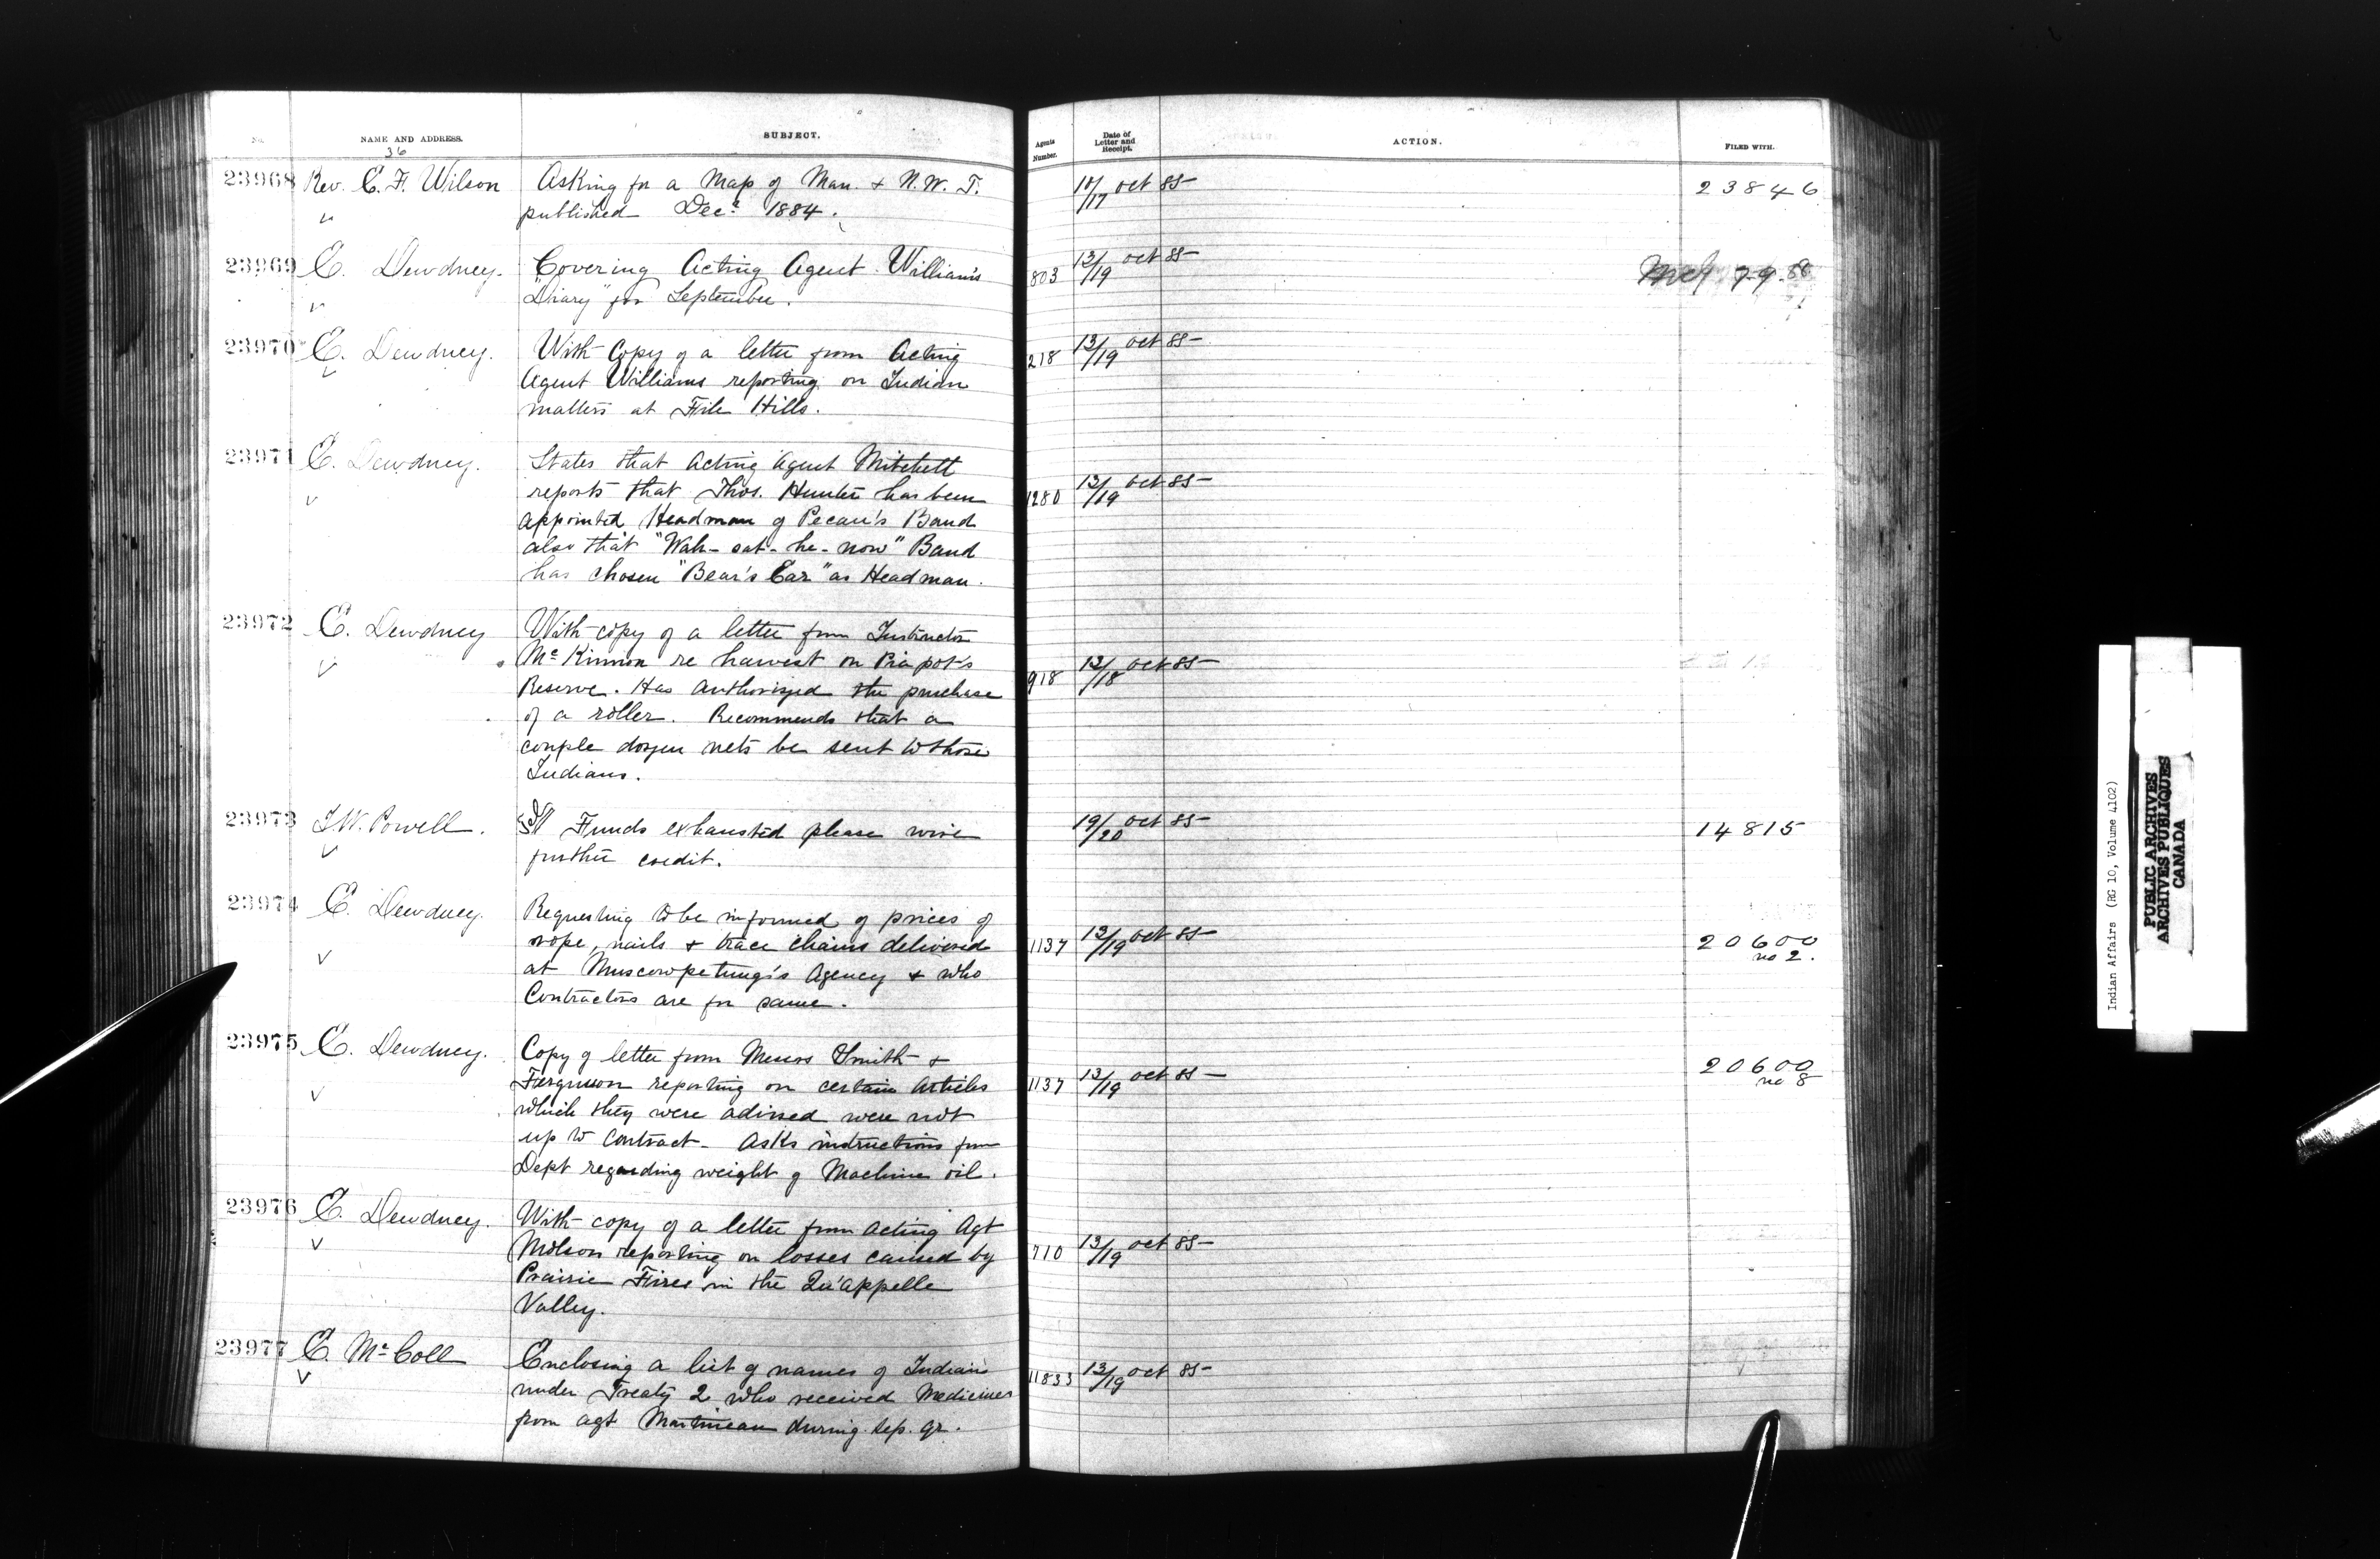 No. NAME AND ADDRESS. SUBJECT. Agents Number. Date of Letter and Receipt. ACTION. FILED WITH.
36
23968 Rev. E. F. Wilson Asking for a Map of Man. & N.W.T. 10/17 Oct 85 23846
published Dec.r 1884.
23969 E. Dewdney. Covering Acting Agent William's 803 13/19 Oct 85
"Diary" for September.
23970 E. Dewdney. With Copy of a letter from Acting 218 13/19 Oct 85
Agent Williams reporting on Indian
matters at File Hills.
23971 E. Dewdney. States that Acting Agent Mitchell
reports that Thos. Hunter has been 1280 13/19 Oct 85
appointed Headman of Pecan's Band
also that "Wah-sat-he-now" Band
has chosen "Bear's Ear" as Headman.
23972 E. Dewdney With copy of a letter from Instructor
Mc Kinnon re harvest on Piapot's 918 13/18 Oct 85
Reserve. Has authorized the purchase
of a roller. Recommends that a
couple dozen nets be sent to those
Indians.
23973 I.W. Powell. Funds exhausted please wire 19/20 Oct 85 14815
further credit.
23974 E. Dewdney. Requesting to be informed of prices of
rope, nails & trace chains delivered 1137 13/19 Oct 85 20600
at Muscowpetung's Agency & who no 2.
Contractors are for same.
23975 E. Dewdney. Copy of letter from Messrs Smith &
Fergusson reporting on certain articles 1137 13/19 Oct 85 20600
which they were advised were not no 8
up to contract - Asks instructions from
Dept regarding weight of Machine oil.
23976 E. Dewdney. With copy of a letter from Acting Agt
Molson reporting on losses caused by 710 13/19 Oct 85
Prairie Fires in the Qu'appelle
Valley.
23977 E. Mc Coll Enclosing a list of names of Indians 11833 13/19 Oct 85
under Treaty 2 who received Medicines
from agt Martineau during Sep. qr.
Indian Affairs (RG 10, Volume 4102)
PUBLIC ARCHIVES
ARCHIVES PUBLIQUES
CANADA